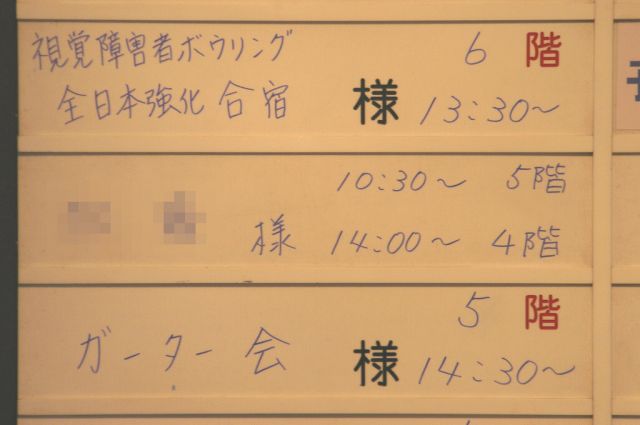 視覚障害者ボウリング 6 階
全日本強化合宿 様 13:30~
10:30~ 5階
様 14:00~ 4階
5 階
ガーター会 様 14:30~